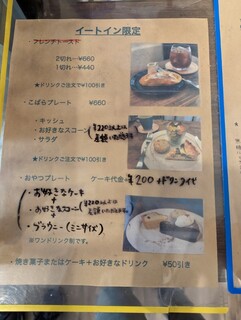 イートイン限定
フレンチトースト
2切れ…¥660
1切れ…¥440
★ドリンクご注文で¥100引き
・こばらプレート ¥660
・キッシュ
・お好きなスコーン
・サラダ
(¥220以上は差額いただきます)
★ドリンクご注文で¥100引き
・おやつプレート ケーキ代金+¥200+ドリンクライド
・お好きなケーキ
+
・お好きなスコーン (¥220以上は差額いただきます)
+
・ブラウニー(ミニサイズ)
※ワンドリンク制です。
・焼き菓子またはケーキ+お好きなドリンク ¥50引き